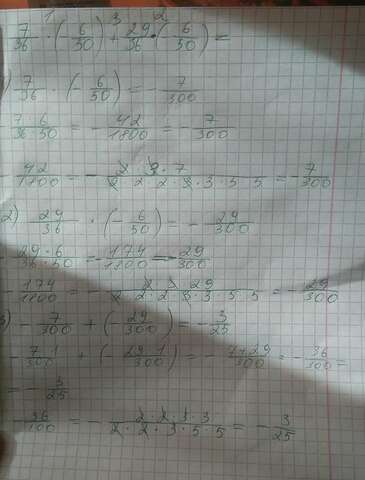 1 3 2
7/36 · (- 6/50) + 29/36 · (- 6/50) =
1) 7/36 · (- 6/50) = - 7/300
7·6/36·50 = - 42/1800 = - 7/300
- 42/1800 = - 2·3·7/2·2·2·3·3·5·5 = - 7/300
2) 29/36 · (- 6/50) = - 29/300
- 29·6/36·50 = - 174/1800 = - 29/300
- 174/1800 = - 2·3·29/2·2·2·3·3·5·5 = - 29/300
3) - 7/300 + (- 29/300) = - 3/25
- 7/300 + (- 29·1/300) = - 7+29/300 = - 36/300 =
= - 3/25
36/100 = - 2·2·3·3/2·2·3·5·5 = - 3/25